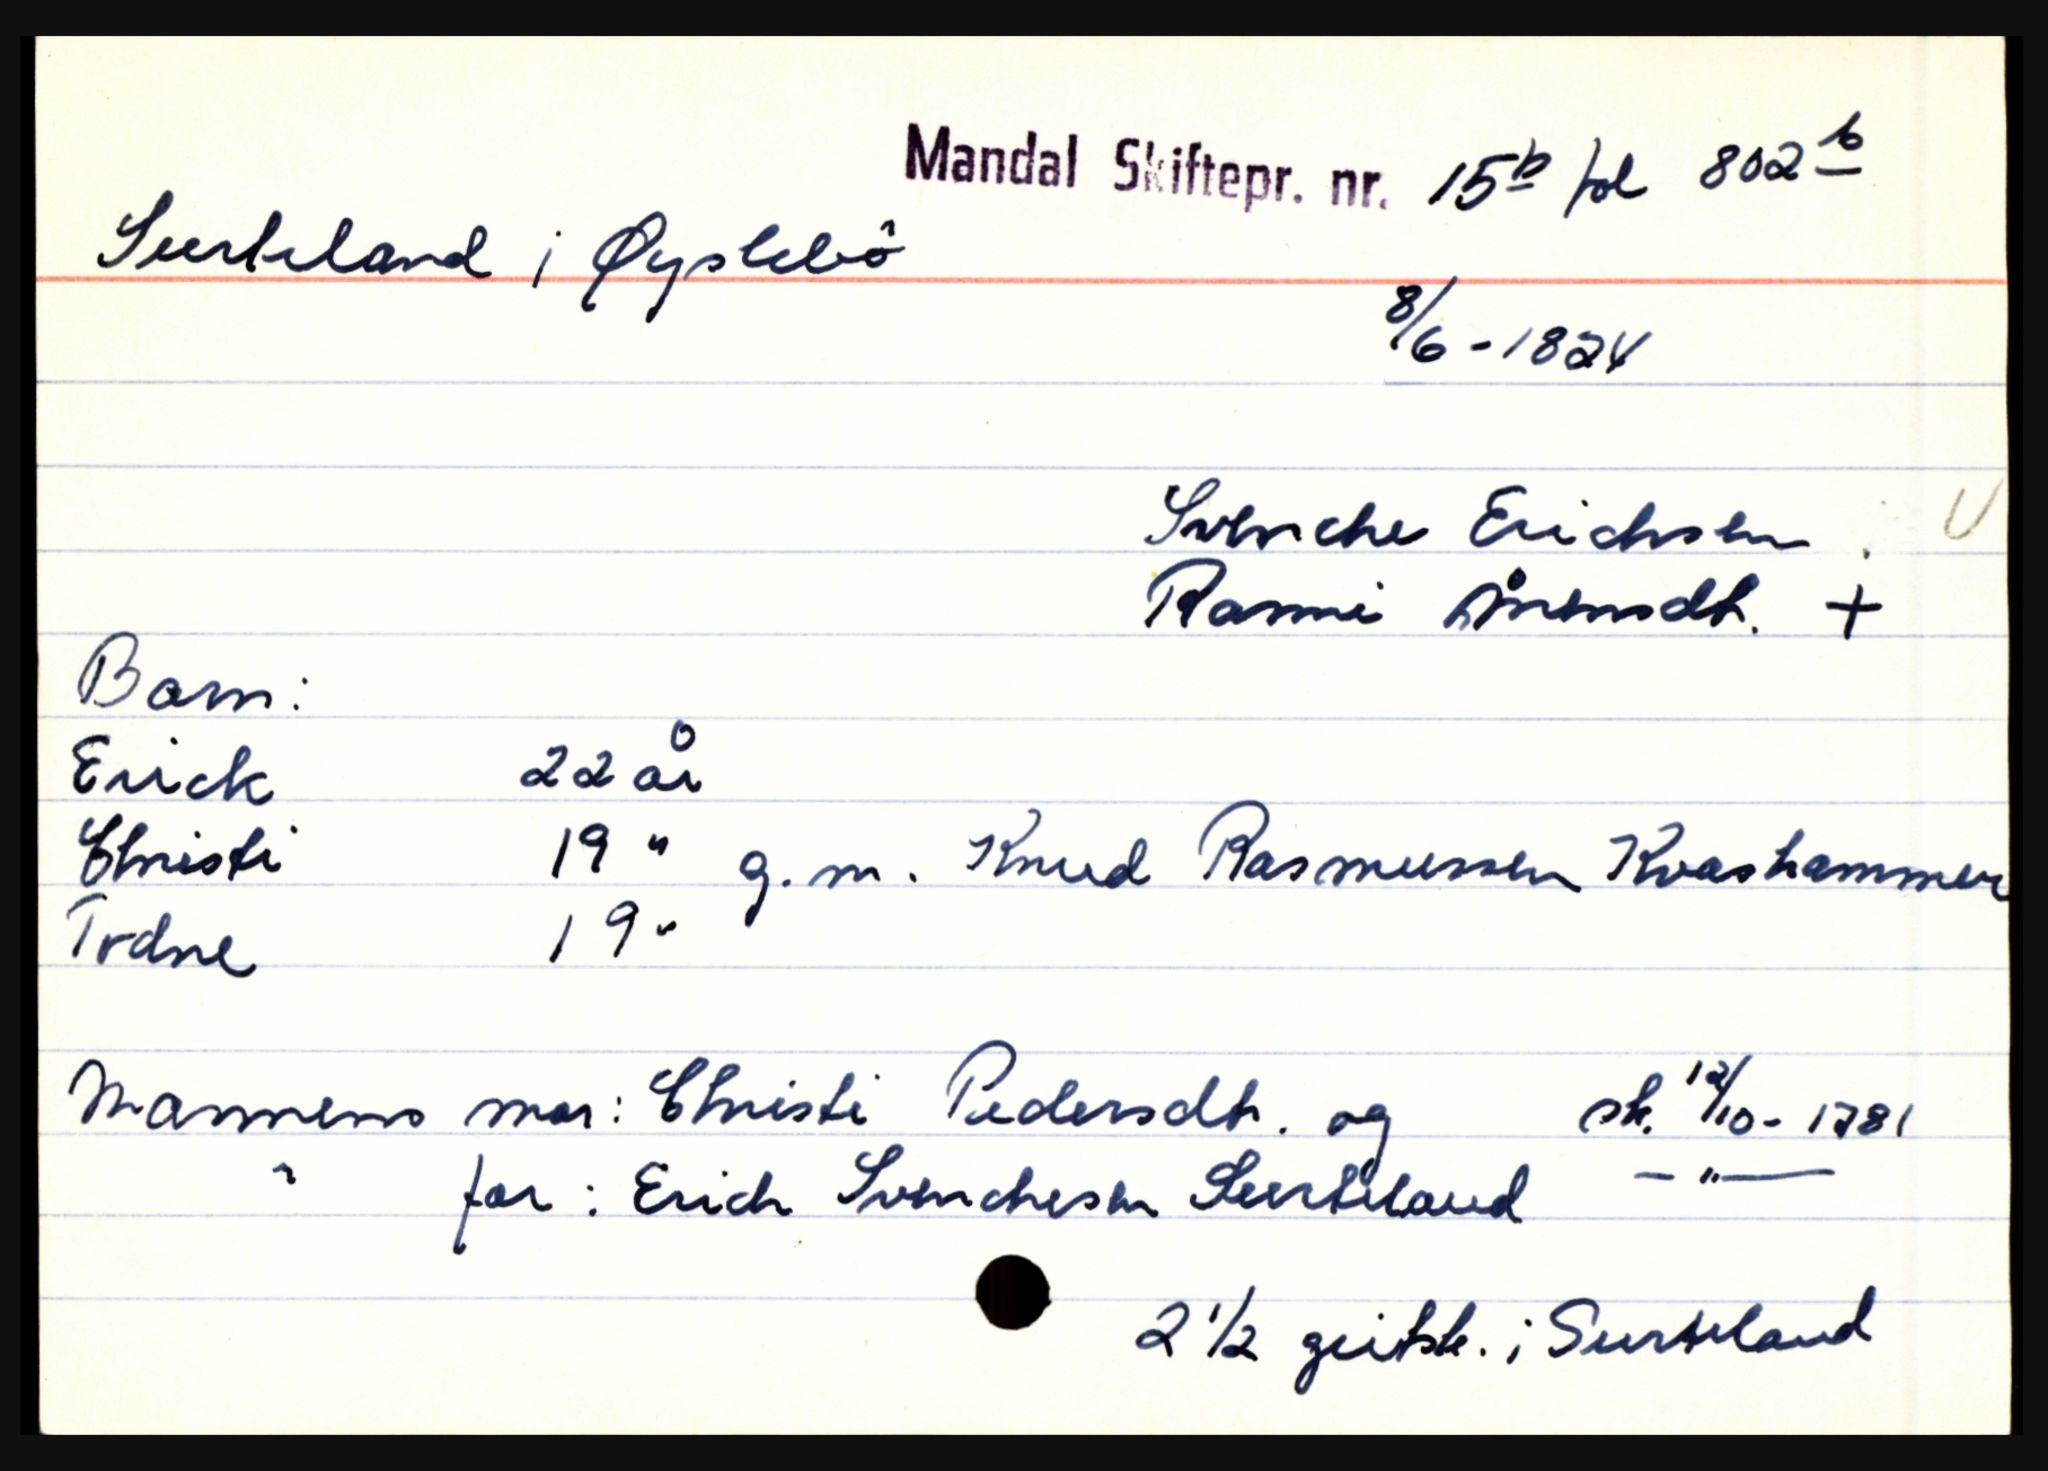 Mandal Skiftepr. nr. 15b fol 802b
Surteland i Øyslebö
8/6 - 1824
Svenche Erichsen
Ranni Ånensdt. +
Barn:
Erick 22 år
Christi 19 " g. m. Knud Rasmussen Kvashammer
Trdne 19 "
Mannens mor: Christi Pedersdt. og sk. 12/10 - 1781
" far: Erich Svenchesen Surteland - " -
2 1/2 geitsk. i Surteland